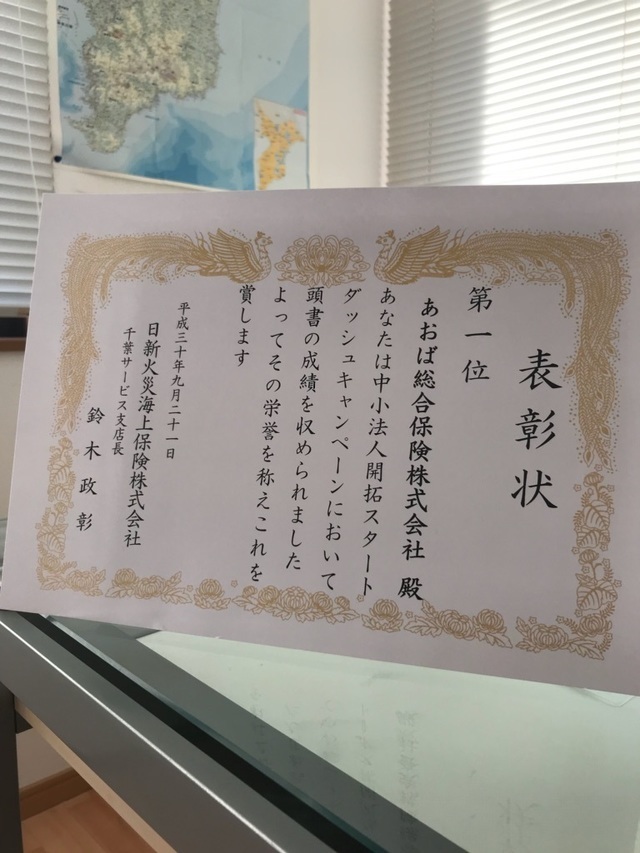 表彰状
第一位
あおば総合保険株式会社 殿
あなたは中小法人開拓スタート
ダッシュキャンペーンにおいて
頭書の成績を収められました
よってその栄誉を称えこれを
賞します
平成三十年九月二十一日
日新火災海上保険株式会社
千葉サービス支店長
鈴木政彰